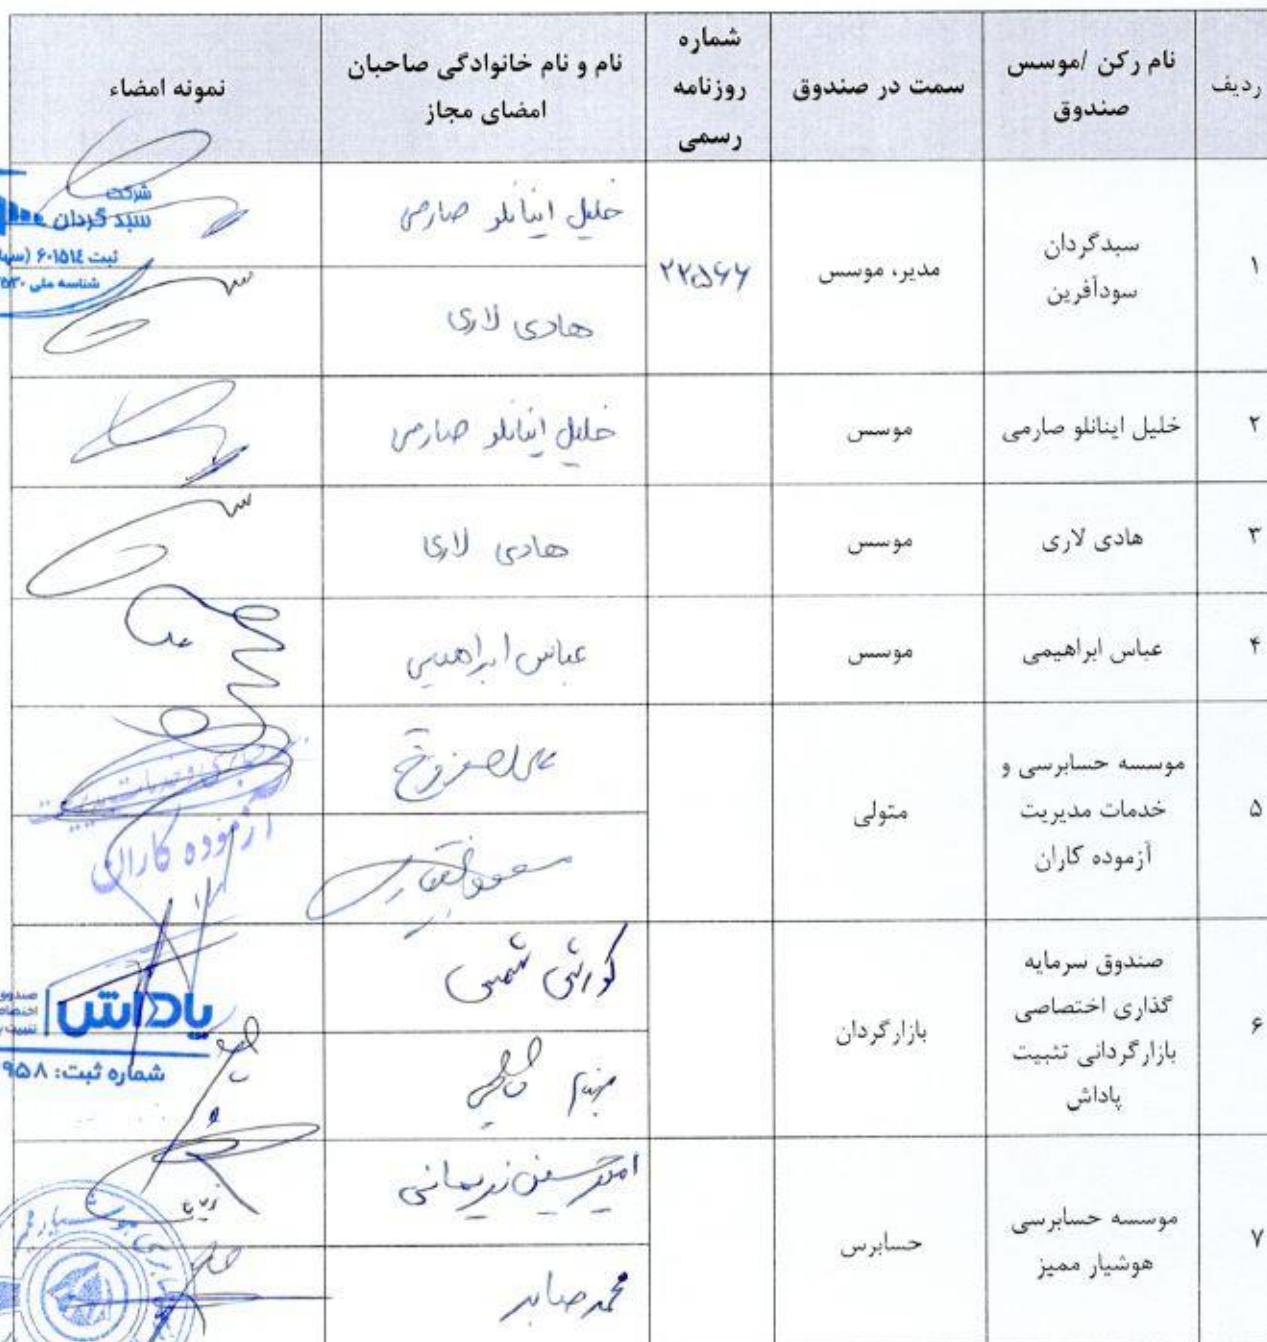 ردیف
نام رکن /موسس
صندوق
سمت در صندوق
شماره
روزنامه
رسمی
نام و نام خانوادگی صاحبان
امضای مجاز
نمونه امضاء
۱
سبدگردان
سودآفرین
مدیر، موسس
۲۲۵۶۶
خلیل اینانلو صارمی
هادی لاری
شرکت
سبد گردان
ثبت ۶۰۱۵۱٤
شناسه ملی
۲
خلیل اینانلو صارمی
موسس
خلیل اینانلو صارمی
۳
هادی لاری
موسس
هادی لاری
۴
عباس ابراهیمی
موسس
عباس ابراهیمی
۵
موسسه حسابرسی و
خدمات مدیریت
آزموده کاران
متولی
آزموده کاران
۶
صندوق سرمایه
گذاری اختصاصی
بازارگردانی تثبیت
پاداش
بازارگردان
کورش شمس
پاداش
شماره ثبت: ۹۵۸
۷
موسسه حسابرسی
هوشیار ممیز
حسابرس
امیرحسین نریمانی
محمد صابر